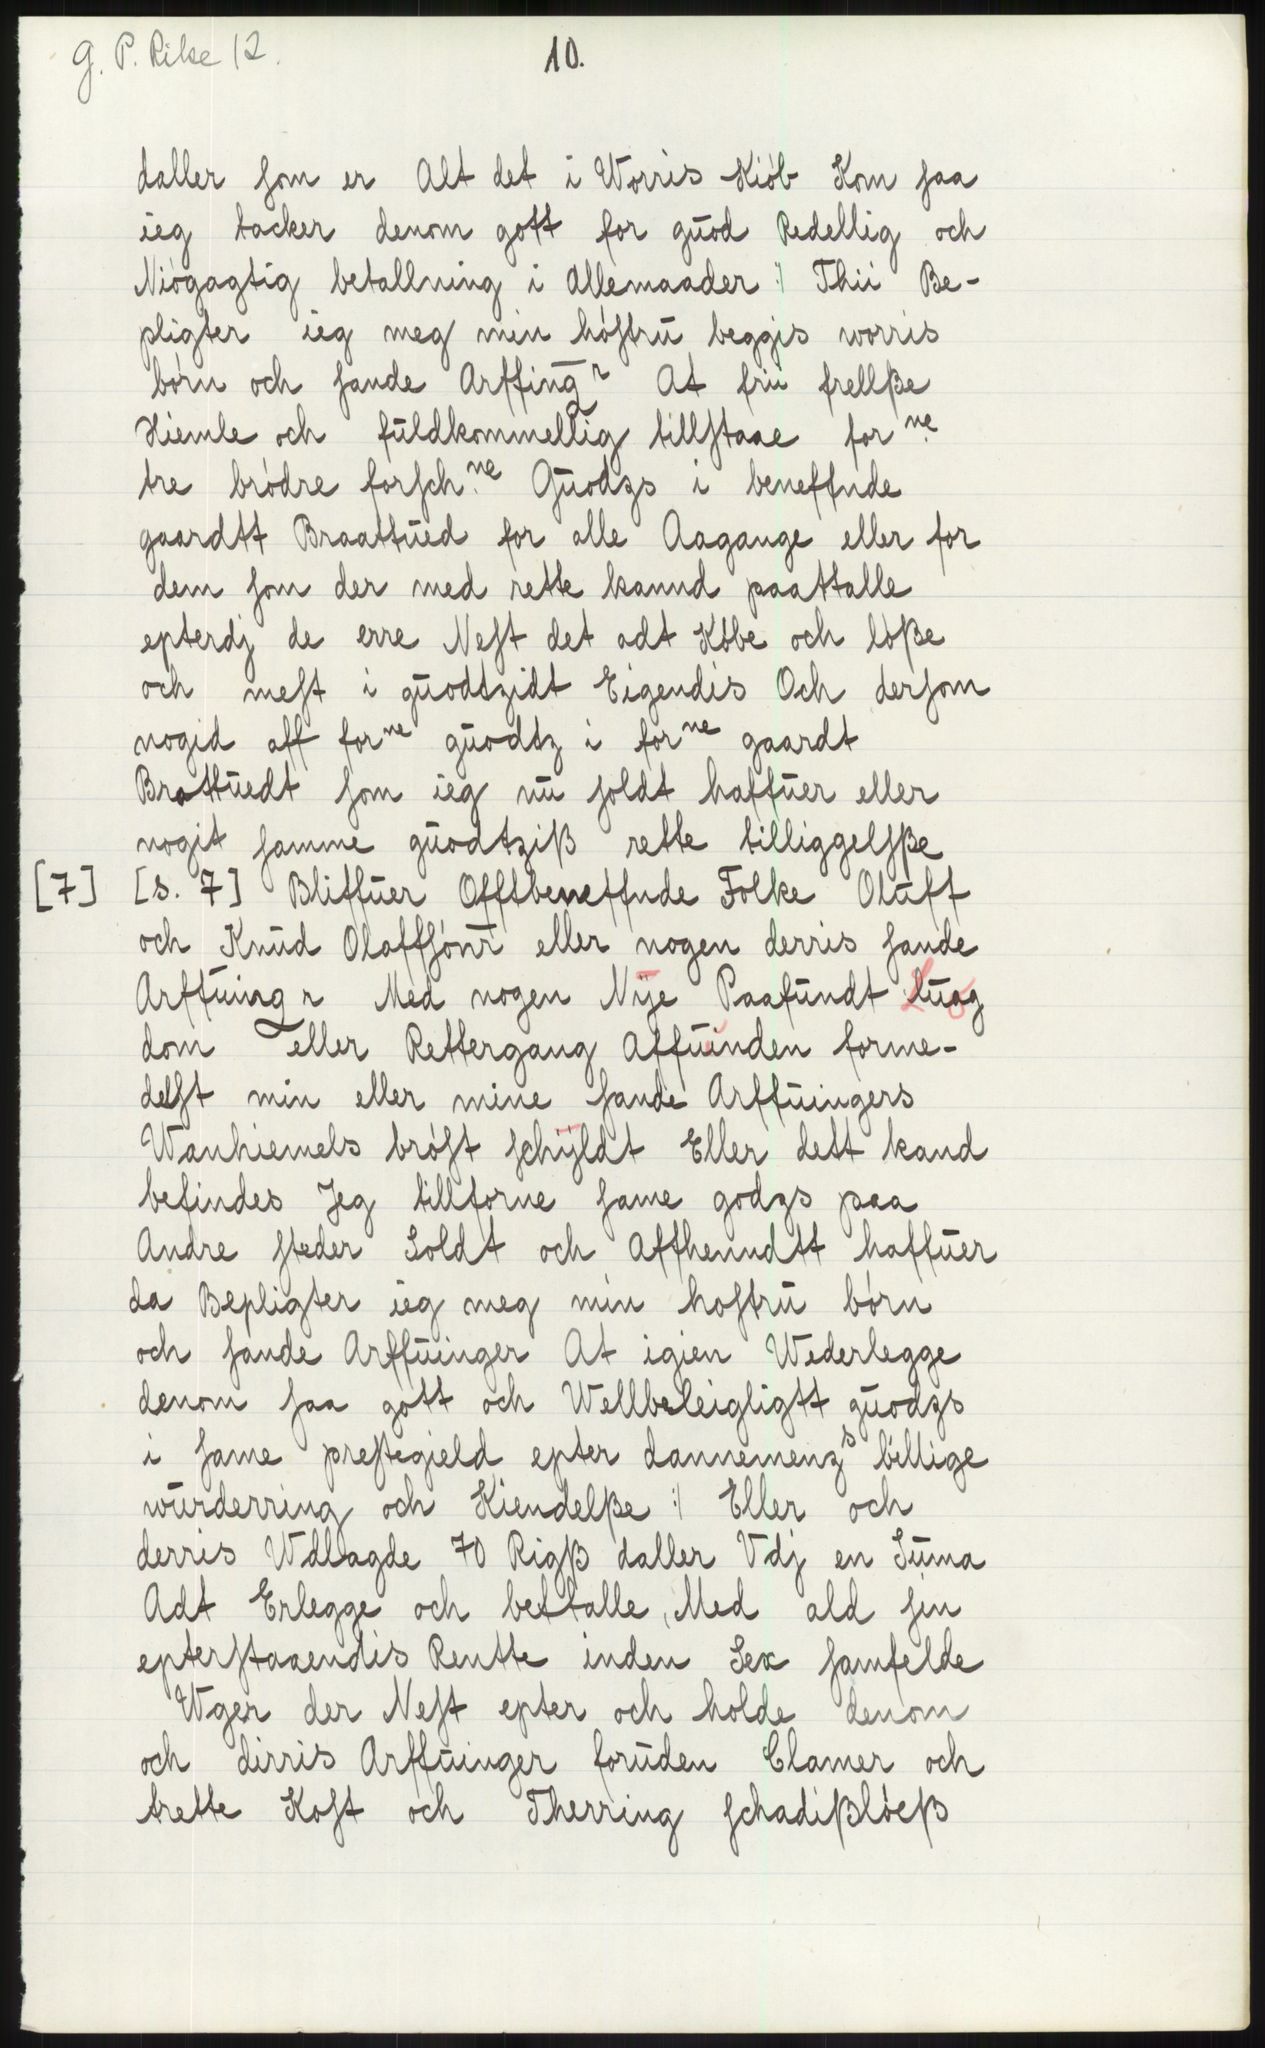 G. P. Rike 12.
10.
daller som er Alt det i Worris Kiób Kom saa
ieg tacker denom gott for guod Redellig och
Niógagtig betallning i Allemaader :/ Thii Be-
pligter ieg meg min hóstru beggis worris
bórn och sande Arffingr At frii frellße
Hiemle och fuldkommellig tillstaae forne
tre bródre forschne Guodzs i beneffnde
gaardtt Braattued for alle Aagange eller for
dem som der med rette kannd paattalle
epterdj de erre Nest det adt Kóbe och lóße
och mest i guodtzidt Eigendis Och dersom
nogid aff forne guodtz i forne gaardt
Brattuedt som ieg nu soldt haffuer eller
nogit samme guodtziß rette tilliggelsße
[7] [s. 7] Bliffuer Offtbeneffnde Folke Oluff
och Knud Olaffsónr eller nogen derris sande
Arffuingr Med nogen Nÿe Paafundt Luog
dom eller Rettergang Affuinden forme-
delst min eller mine sande Arffuingers
Wanhiemels bróst schÿldt Eller dett kand
befindes Jeg tillforne same godzs paa
Andre steder Soldt och Affhenndtt haffuer
da Bepligter ieg meg min hostru bórn
och sande Arffuinger At igien Wederlegge
denom saa gott och Wellbeleigligtt guodzs
i same prestegield epter dannemenzs billige
wurderring och Kiendelße :/ Eller och
derris Wdlagde 70 Rigß daller Vdj en Suma
Adt Erlegge och bettalle, Med ald sin
epterstaaendis Rentte inden Sex samfelde
Wger der Nest epter och holde denom
och dirris Arffuinger foruden Clamer och
trette Kost och Therring schadißlóeß